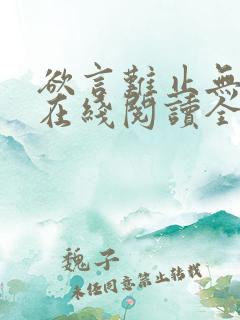 欲言難止無
在綫閱讀全
魏子
未经同意禁止转载